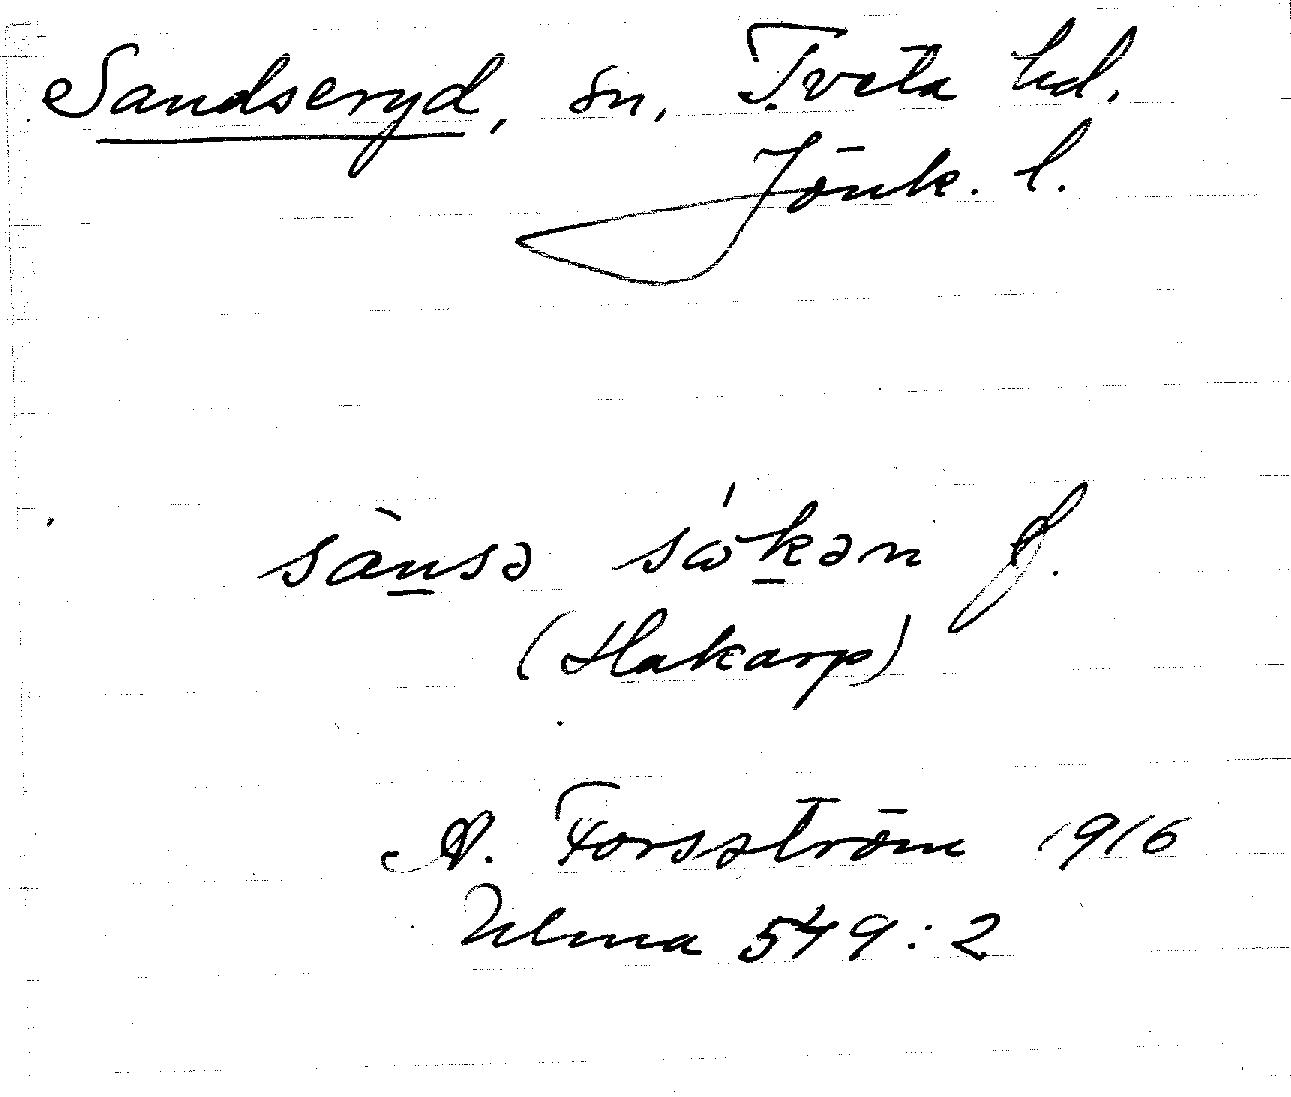 Sandseryd, sn, Tveta hd,
Jönk. l.
sànsə sókən f.
(Hakarp)
A. Forsström 1916
Ulma 549:2